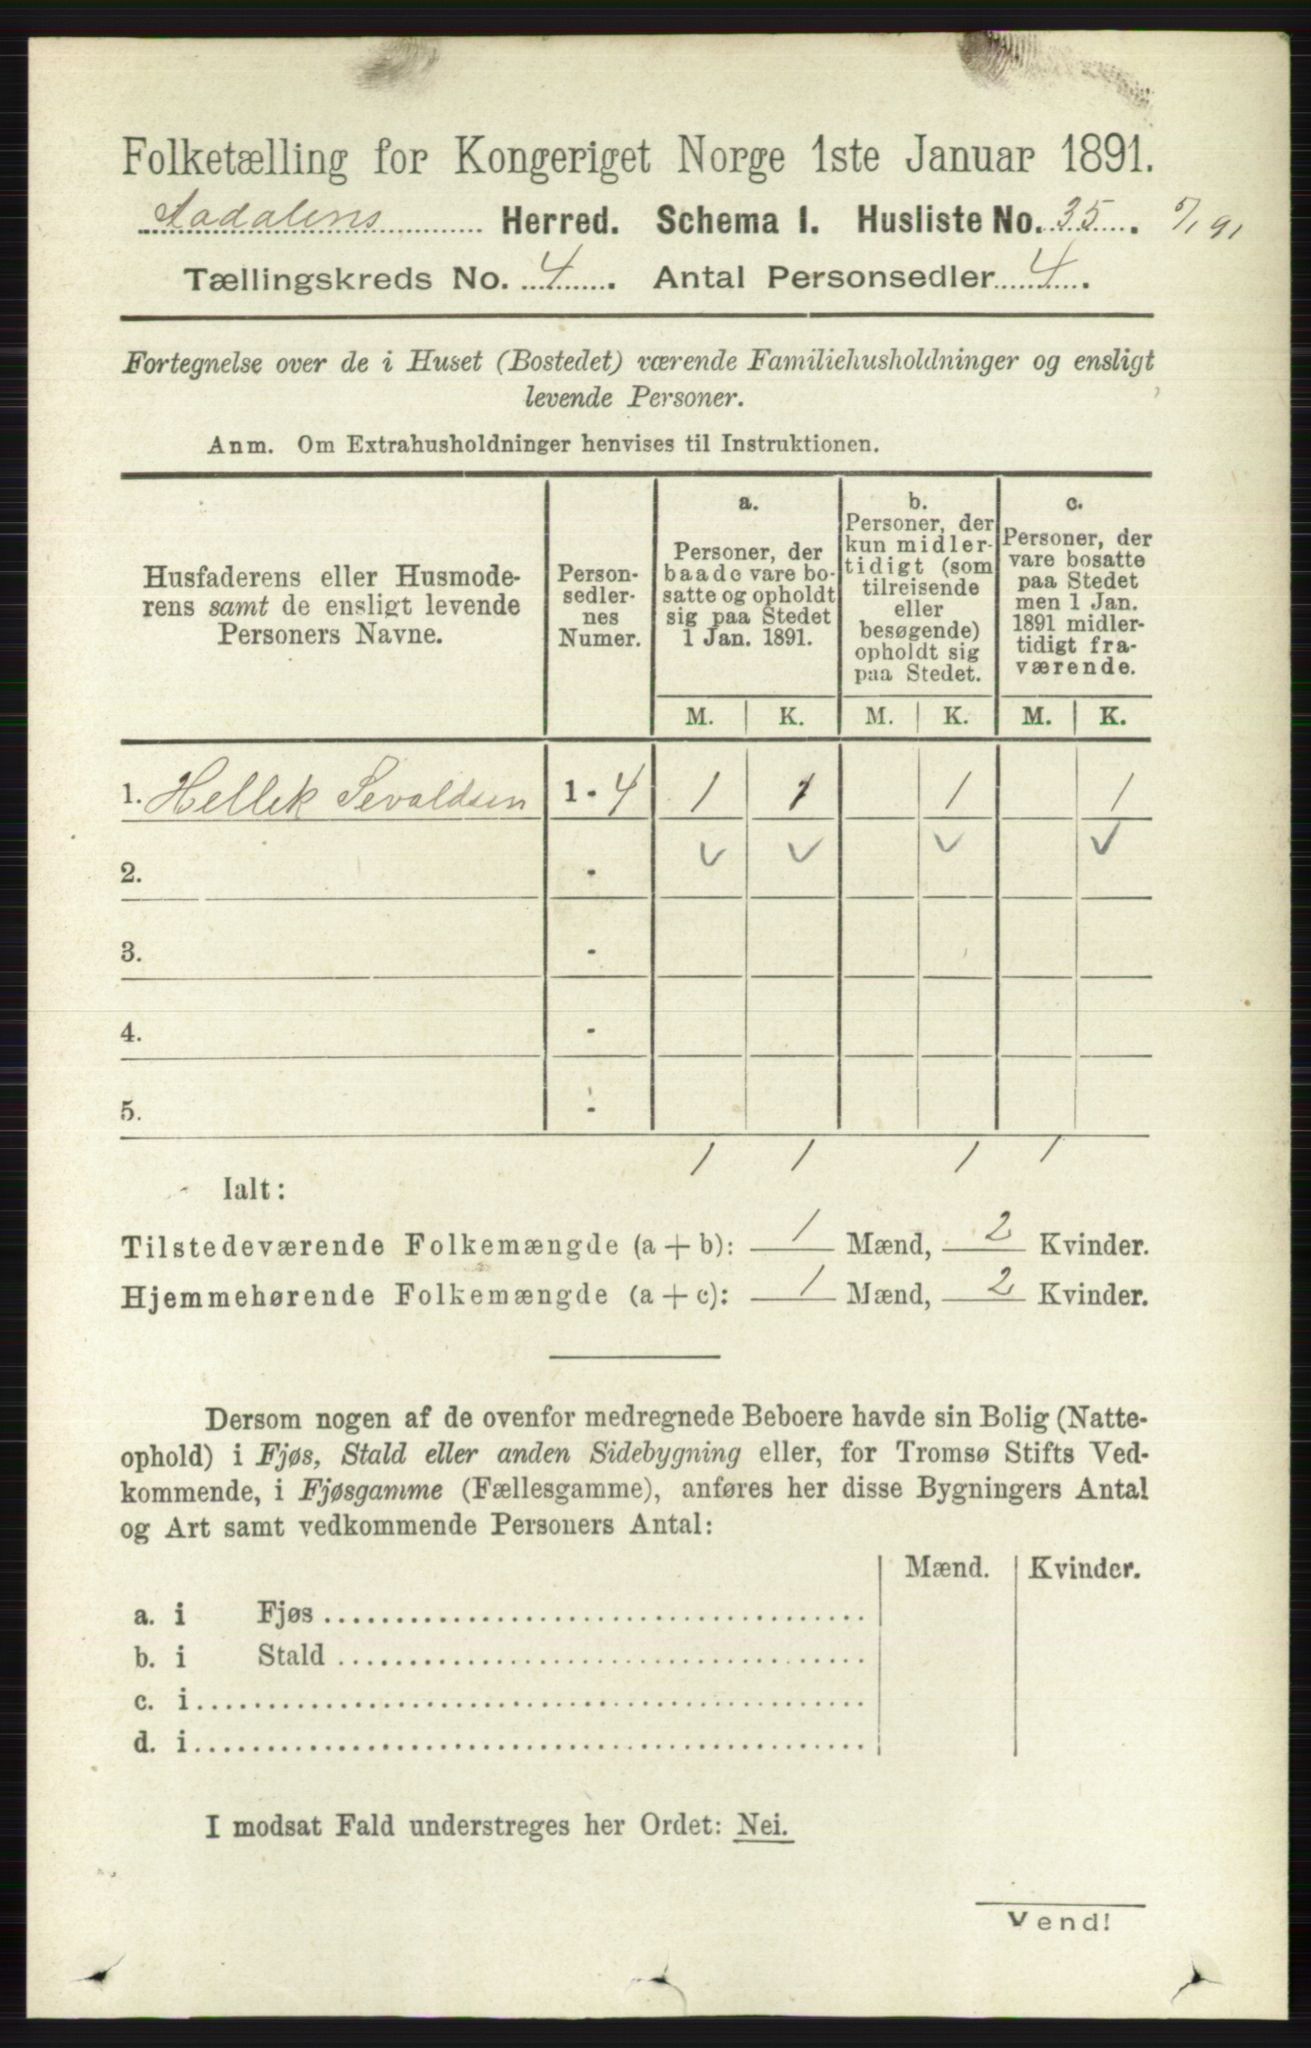 Folketælling for Kongeriget Norge 1ste Januar 1891.
Aadalens Herred. Schema I. Husliste No. 35. 5/1 91
Tællingskreds No. 4. Antal Personsedler 4.
Fortegnelse over de i Huset (Bostedet) værende Familiehusholdninger og ensligt
levende Personer.
Anm. Om Extrahusholdninger henvises til Instruktionen.
Husfaderens eller Husmode-
rens samt de ensligt levende
Personers Navne.
Person-
sedler-
nes
Numer.
a.
Personer, der
baade vare bo-
satte og opholdt
sig paa Stedet
1 Jan. 1891.
b.
Personer, der
kun midler-
tidigt (som
tilreisende
eller
besøgende)
opholdt sig
paa Stedet.
c.
Personer, der
vare bosatte
paa Stedet
men 1 Jan.
1891 midler-
tidigt fra-
værende.
M. K. M. K. M. K.
1. Hellek Sevaldsen 1-4 1 1 1 1
2. - ✓ ✓ ✓ ✓
3. -
4. -
5. -
Ialt: 1 1 1 1
Tilstedeværende Folkemængde (a + b): 1 Mænd, 2 Kvinder.
Hjemmehørende Folkemængde (a + c): 1 Mænd, 2 Kvinder.
Dersom nogen af de ovenfor medregnede Beboere havde sin Bolig (Natte-
ophold) i Fjøs, Stald eller anden Sidebygning eller, for Tromsø Stifts Ved-
kommende, i Fjøsgamme (Fællesgamme), anføres her disse Bygningers Antal
og Art samt vedkommende Personers Antal:
Mænd. Kvinder.
a. i Fjøs
b. i Stald
c. i
d. i
I modsat Fald understreges her Ordet: Nei.
Vend!